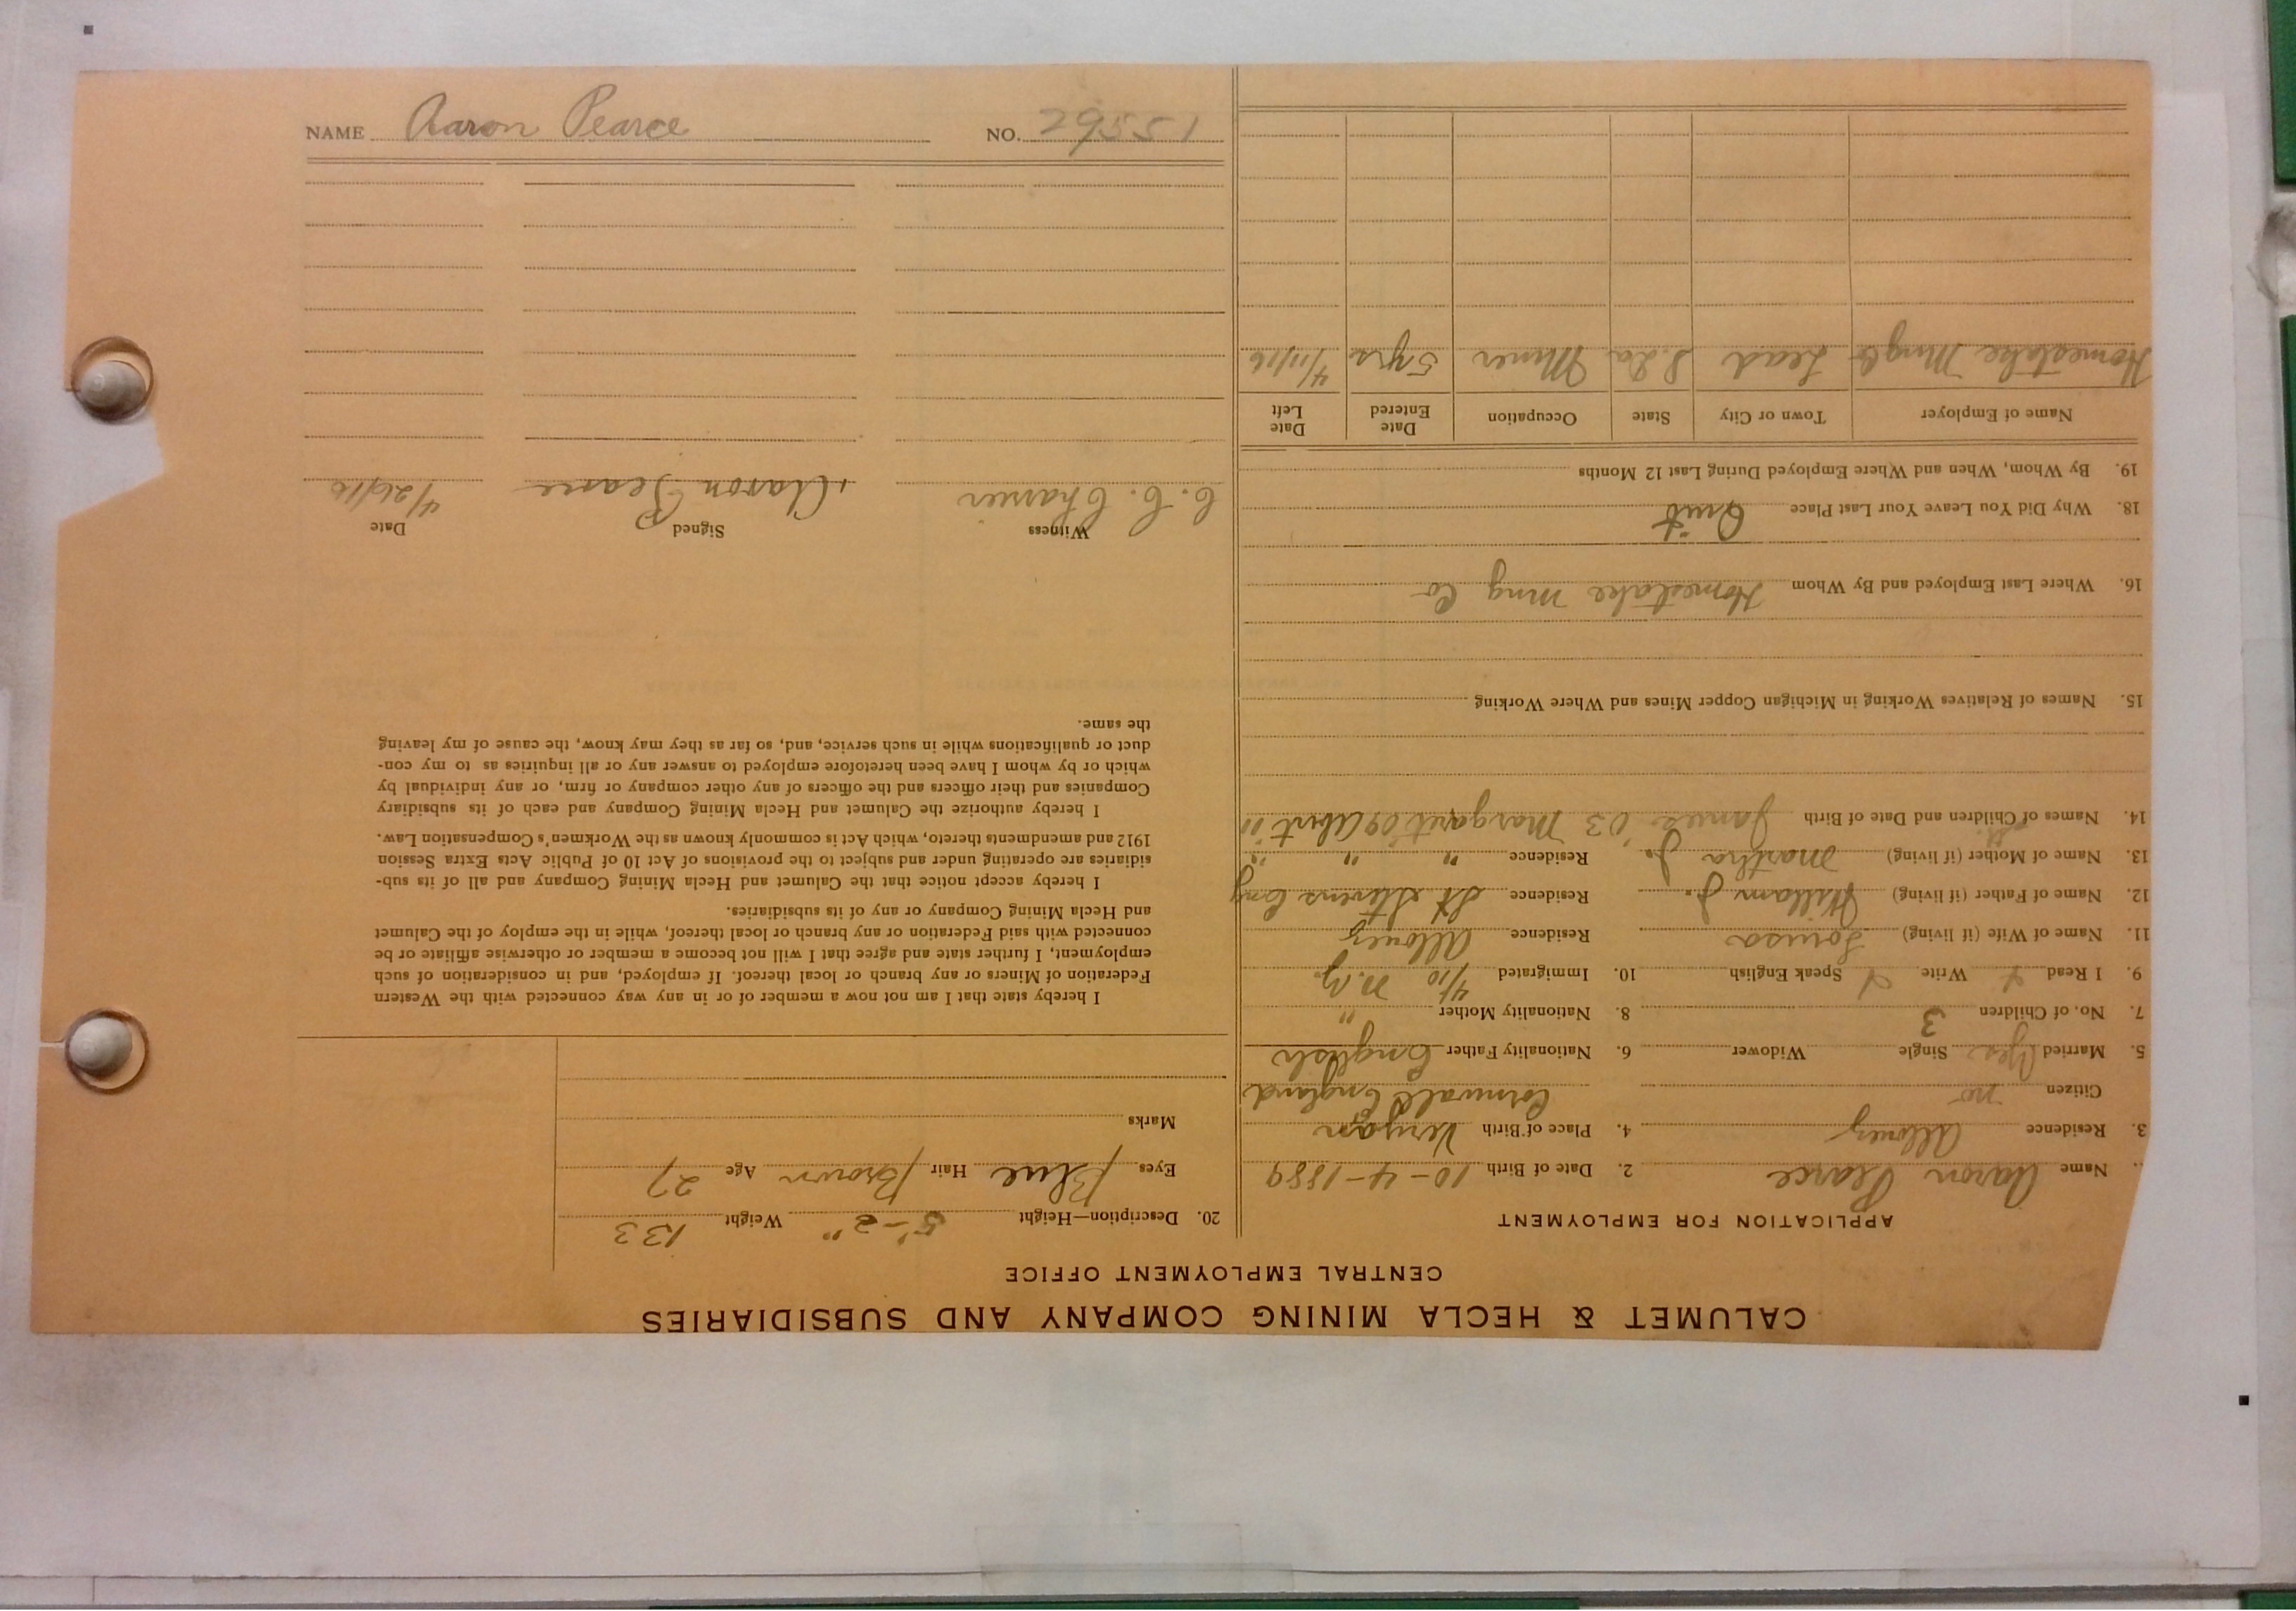 NAME Aaron Pearce NO. 29551
CALUMET & HECLA MINING COMPANY AND SUBSIDIARIES
CENTRAL EMPLOYMENT OFFICE
APPLICATION FOR EMPLOYMENT
Name Aaron Pearce 2. Date of Birth 10-4-1889
3. Residence Allouez 4. Place of Birth Veryan
Citizen no Cornwall England
5. Married Yes Single Widower 6. Nationality Father English
7. No. of Children 3 8. Nationality Mother "
9. I Read Write Speak English 10. Immigrated 4/10 N.Y.
11. Name of Wife (if living) Louisa Residence Allouez
12. Name of Father (if living) William J. Residence St Stevens Eng
13. Name of Mother (if living) Martha J. Residence " "
14. Names of Children and Date of Birth James '03 Margaret '09 Albert '11
15. Names of Relatives Working in Michigan Copper Mines and Where Working
16. Where Last Employed and By Whom Homestake Mng Co
18. Why Did You Leave Your Last Place Quit
19. By Whom, When and Where Employed During Last 12 Months
Name of Employer Town or City State Occupation Date Entered Date Left
Homestake Mng Co Lead S. Da Miner 5 yrs 4/11/16
20. Description—Height 5'-2" Weight 133
Eyes Blue Hair Brown Age 27
Marks
I hereby state that I am not now a member of or in any way connected with the Western
Federation of Miners or any branch or local thereof. If employed, and in consideration of such
employment, I further state and agree that I will not become a member or otherwise affiliate or be
connected with said Federation or any branch or local thereof, while in the employ of the Calumet
and Hecla Mining Company or any of its subsidiaries.
I hereby accept notice that the Calumet and Hecla Mining Company and all of its sub-
sidiaries are operating under and subject to the provisions of Act 10 of Public Acts Extra Session
1912 and amendments thereto, which Act is commonly known as the Workmen's Compensation Law.
I hereby authorize the Calumet and Hecla Mining Company and each of its subsidiary
Companies and their officers and the officers of any other company or firm, or any individual by
which or by whom I have been heretofore employed to answer any or all inquiries as to my con-
duct or qualifications while in such service, and, so far as they may know, the cause of my leaving
the same.
Witness Signed Date
Aaron Pearce 4/26/16